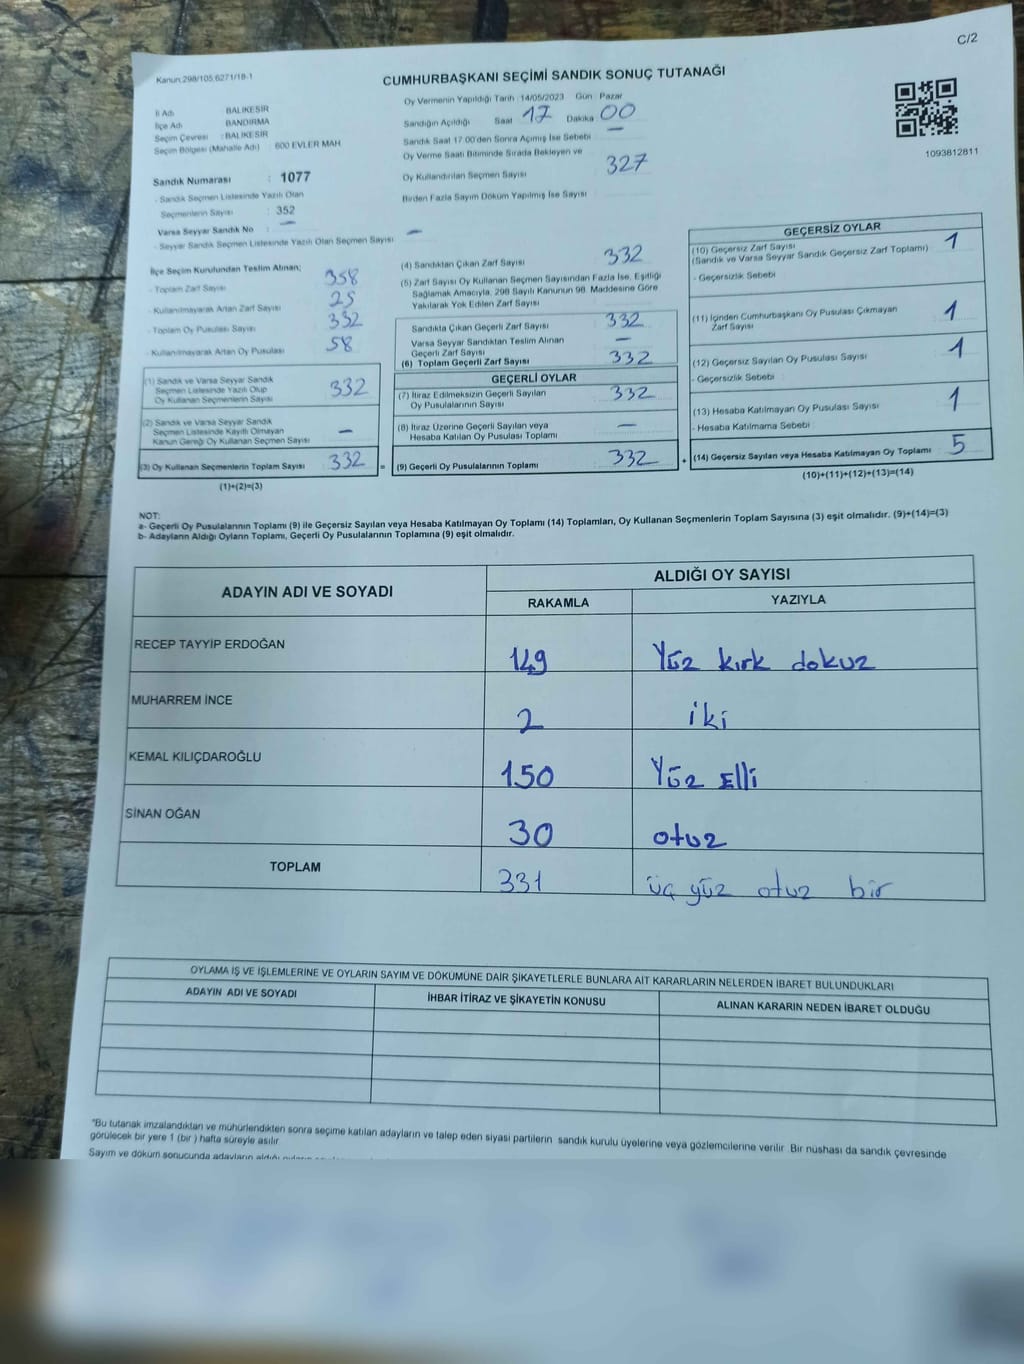 C/2
Kanun:298/105:6271/18-1
CUMHURBAŞKANI SEÇİMİ SANDIK SONUÇ TUTANAĞI
1093812811
İl Adı BALIKESİR
İlçe Adı BANDIRMA
Seçim Çevresi : BALIKESİR
Seçim Bölgesi (Mahalle Adı) : 600 EVLER MAH
Sandık Numarası : 1077
- Sandık Seçmen Listesinde Yazılı Olan
Seçmenlerin Sayısı : 352
Varsa Seyyar Sandık No : —
- Seyyar Sandık Seçmen Listesinde Yazılı Olan Seçmen Sayısı —
Oy Vermenin Yapıldığı Tarih : 14/05/2023 Gün : Pazar
Sandığın Açıldığı Saat 17 Dakika 00
Sandık Saat 17:00'den Sonra Açımış İse Sebebi —
Oy Verme Saati Bitiminde Sırada Bekleyen ve
Oy Kullandırılan Seçmen Sayısı 327
Birden Fazla Sayım Döküm Yapılmış İse Sayısı
İlçe Seçim Kurulundan Teslim Alınan;
- Toplam Zarf Sayısı 358
- Kullanılmayarak Artan Zarf Sayısı 25
- Toplam Oy Pusulası Sayısı 332
- Kullanılmayarak Artan Oy Pusulası 58
(1) Sandık ve Varsa Seyyar Sandık
Seçmen Listesinde Yazılı Olup
Oy Kullanan Seçmenlerin Sayısı 332
(2) Sandık ve Varsa Seyyar Sandık
Seçmen Listesinde Kayıtlı Olmayan
Kanun Gereği Oy Kullanan Seçmen Sayısı —
(3) Oy Kullanan Seçmenlerin Toplam Sayısı 332 =
(1)+(2)=(3)
(4) Sandıktan Çıkan Zarf Sayısı 332
(5) Zarf Sayısı Oy Kullanan Seçmen Sayısından Fazla İse, Eşitliği
Sağlamak Amacıyla, 298 Sayılı Kanunun 98. Maddesine Göre
Yakılarak Yok Edilen Zarf Sayısı
Sandıkta Çıkan Geçerli Zarf Sayısı 332
Varsa Seyyar Sandıktan Teslim Alınan
Geçerli Zarf Sayısı —
(6) Toplam Geçerli Zarf Sayısı 332
GEÇERLİ OYLAR
(7) İtiraz Edilmeksizin Geçerli Sayılan
Oy Pusulalarının Sayısı 332
(8) İtiraz Üzerine Geçerli Sayılan veya
Hesaba Katılan Oy Pusulası Toplamı —
(9) Geçerli Oy Pusulalarının Toplamı 332 +
GEÇERSİZ OYLAR
(10) Geçersiz Zarf Sayısı
(Sandık ve Varsa Seyyar Sandık Geçersiz Zarf Toplamı) 1
- Geçersizlik Sebebi
(11) İçinden Cumhurbaşkanı Oy Pusulası Çıkmayan
Zarf Sayısı 1
(12) Geçersiz Sayılan Oy Pusulası Sayısı 1
- Geçersizlik Sebebi
(13) Hesaba Katılmayan Oy Pusulası Sayısı 1
- Hesaba Katılmama Sebebi
(14) Geçersiz Sayılan veya Hesaba Katılmayan Oy Toplamı 5
(10)+(11)+(12)+(13)=(14)
NOT:
a- Geçerli Oy Pusulalarının Toplamı (9) ile Geçersiz Sayılan veya Hesaba Katılmayan Oy Toplamı (14) Toplamları, Oy Kullanan Seçmenlerin Toplam Sayısına (3) eşit olmalıdır. (9)+(14)=(3)
b- Adayların Aldığı Oyların Toplamı, Geçerli Oy Pusulalarının Toplamına (9) eşit olmalıdır.
ADAYIN ADI VE SOYADI
ALDIĞI OY SAYISI
RAKAMLA YAZIYLA
RECEP TAYYİP ERDOĞAN 149 Yüz kırk dokuz
MUHARREM İNCE 2 iki
KEMAL KILIÇDAROĞLU 150 Yüz Elli
SİNAN OĞAN 30 otuz
TOPLAM 331 üç yüz otuz bir
OYLAMA İŞ VE İŞLEMLERİNE VE OYLARIN SAYIM VE DÖKÜMÜNE DAİR ŞİKAYETLERLE BUNLARA AİT KARARLARIN NELERDEN İBARET BULUNDUKLARI
ADAYIN ADI VE SOYADI İHBAR İTİRAZ VE ŞİKAYETİN KONUSU ALINAN KARARIN NEDEN İBARET OLDUĞU
"Bu tutanak imzalandıktan ve mühürlendikten sonra seçime katılan adayların ve talep eden siyasi partilerin sandık kurulu üyelerine veya gözlemcilerine verilir. Bir nüshası da sandık çevresinde
görülecek bir yere 1 (bir ) hafta süreyle asılır.
Sayım ve döküm sonucunda adayların aldığı